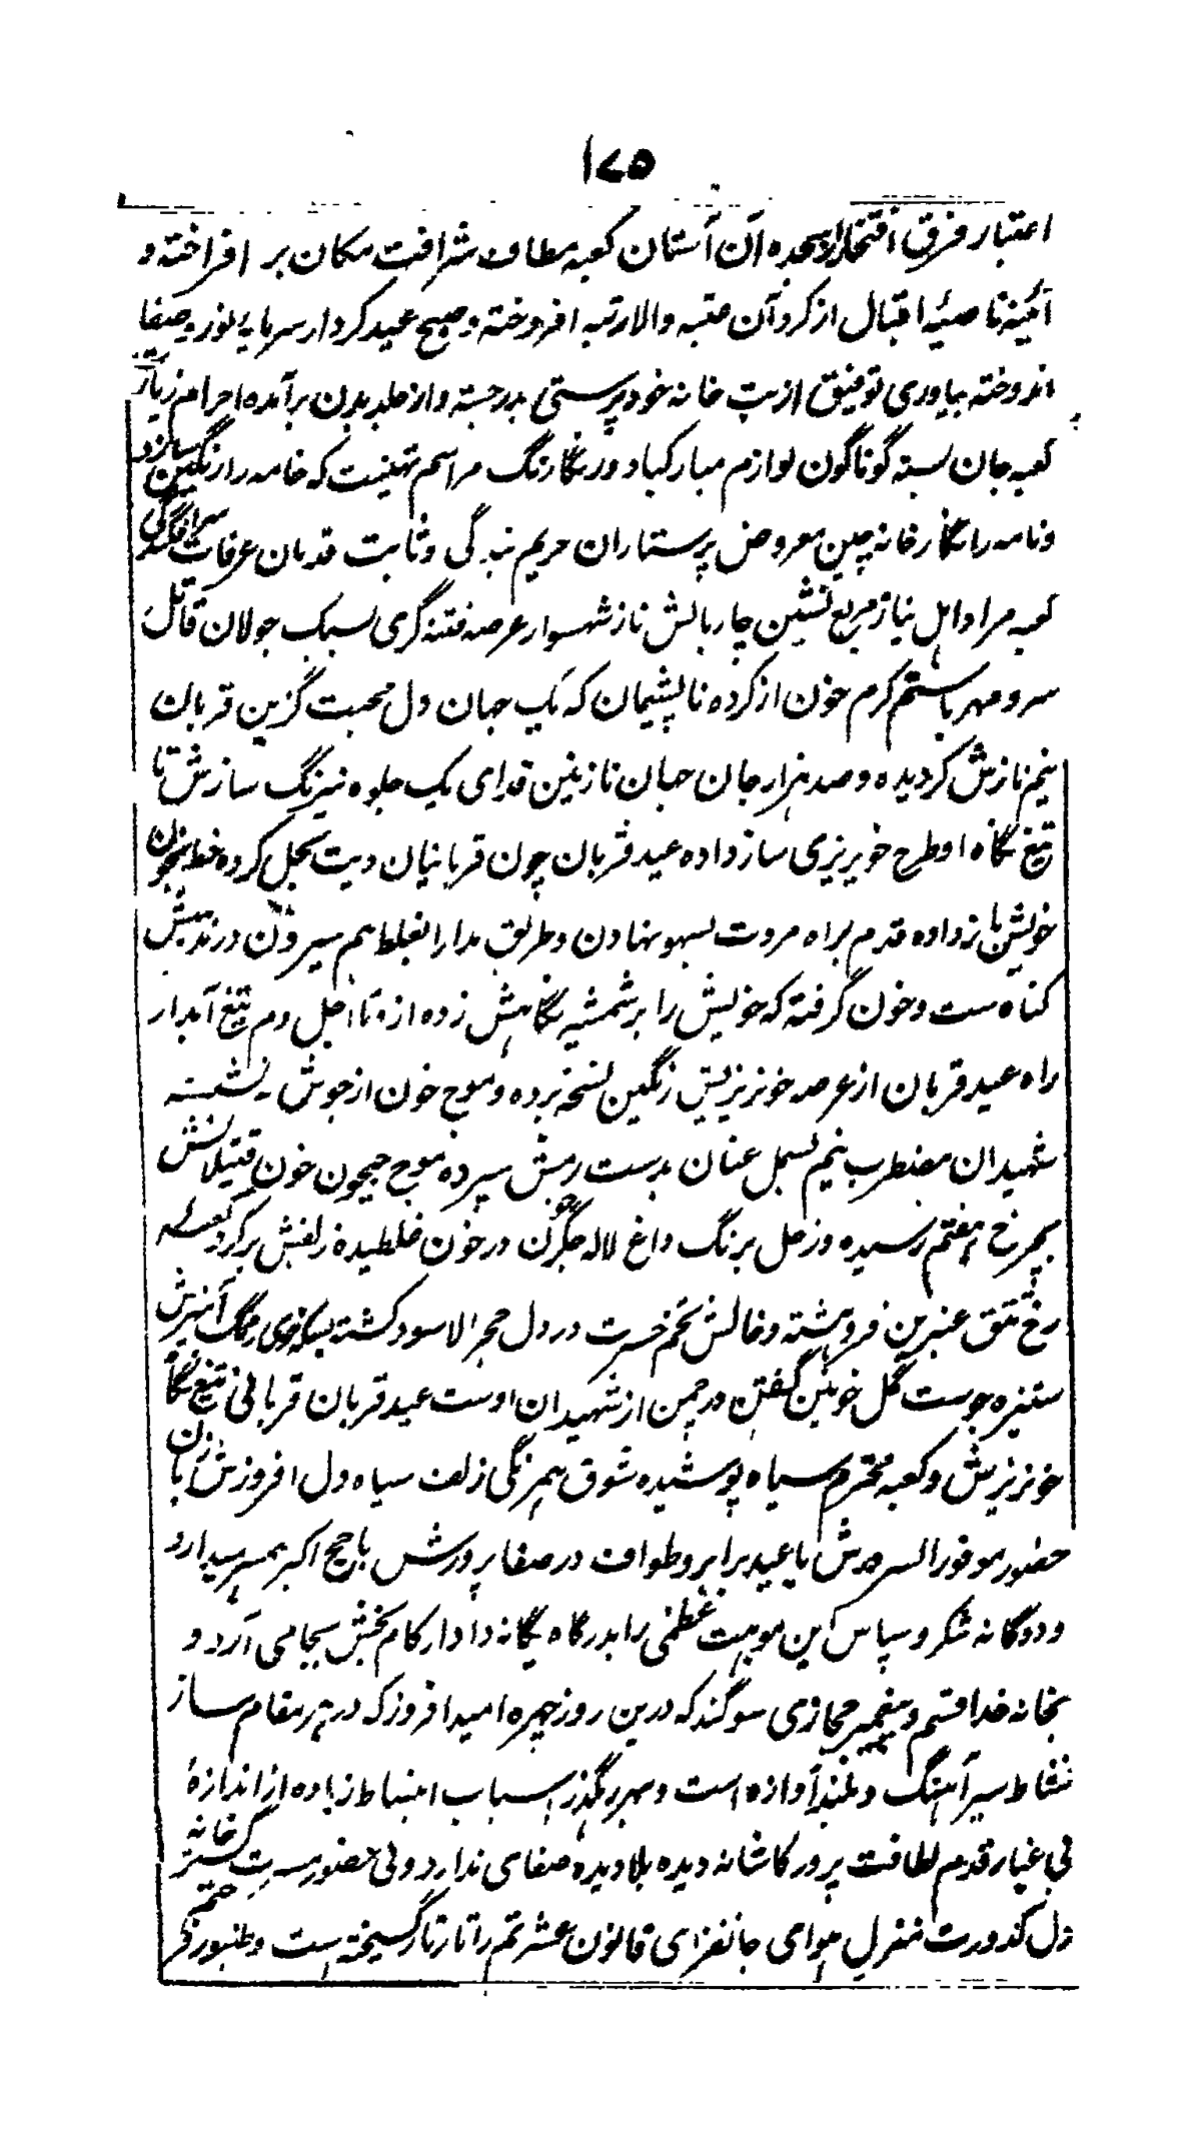 ۱۷۵
اعتبار فرق افتخار بسجده آن آستان کعبه مطاف شرافت مکان بر افراخته و
آئینه ناصیهٔ اقبال از گرد آن عتبه والا رتبه افروخته و صبح عید کردار سرمایه نور و صفا
اندوخته بیاوری توفیق از بت خانه خود پرستی بدر جسته و از جلد بدن برآمده احرام زیارت
کعبه جان بسته گوناگون لوازم مبارکباد و رنگارنگ مراسم تهنیت که خامه را رنگین سازد
و نامه را نگارخانه چین معروض پرستاران حریم بندگی و ثابت قدمان عرفات سرافگندگی
کعبه مراد اهل نیاز مربع نشین چار بالش ناز شهسوار عرصه فتنه گری سبک جولان قاتل
سرد مهر با ستم گرم خون از کرده ناپشیمان که یک جهان دل محبت گزین قربان
نیم نازش گردیده و صد هزار جان جهان نازنین فدای یک جلوه نیرنگ سازش تا
تیغ نگاه او طرح خونریزی ساز داده عید قربان چون قربانیان دیت بحل کرده خط بخون
خویش باز داده قدم براه مروت بسهو نهادن و طریق مدارا بغلط هم سپردن در مذهبش
گناه ست و خون گرفته که خویش را بر شمشیر نگاهش زده از وتا اجل دم تیغ آبدار
راه عید قربان از عرصه خونریزیش رنگین نسخه برده و موج خون از جوش نشسته
شهیدان مضطرب نیم بسمل عنان بدست رمش سپرده موج جیحون خون قتیلانش
بچرخ هفتم رسیده و زحل برنگ داغ لاله جگرگون در خون غلطیده زلفش بر گرد کعبه
رخ تتق عنبرین فروهشته و خالش تخم حسرت در دل حجر الاسود کشته رنگ آمیزش
ستیزه جوست گل خونین کفن در چمن از شهیدان اوست عید قربان قربانی تیغ نگاه
خونریزش و کعبه محترم سیاه پوشیده شوق همرنگی زلف سیاه دل افروزش بازن
حضور موفور السرورش با عید برابر و طواف در صفا پرورش با حج اکبر همسر میدارد
و دوگانه شکر و سپاس این موهبت عظمی را بدرگاه یگانه دادار کام بخش بجا می آرد و
بخانه خدا قسم و پیغمبر حجازی سوگند که درین روز چهره امید افروز که در هر مقام ساز
نشاط سیر آهنگ و بلند آوازه است و بهر رهگذر اسباب انبساط زیاده از اندازهٔ
بی غبار قدم لطافت پرور کاشانه دیده بلا دیده صفای ندارد و بی حضور مسرت گستر خانه
دل کدورت منزل هوای جانفزای قانون عشرتم را تار تار گسیخته است و طنبور